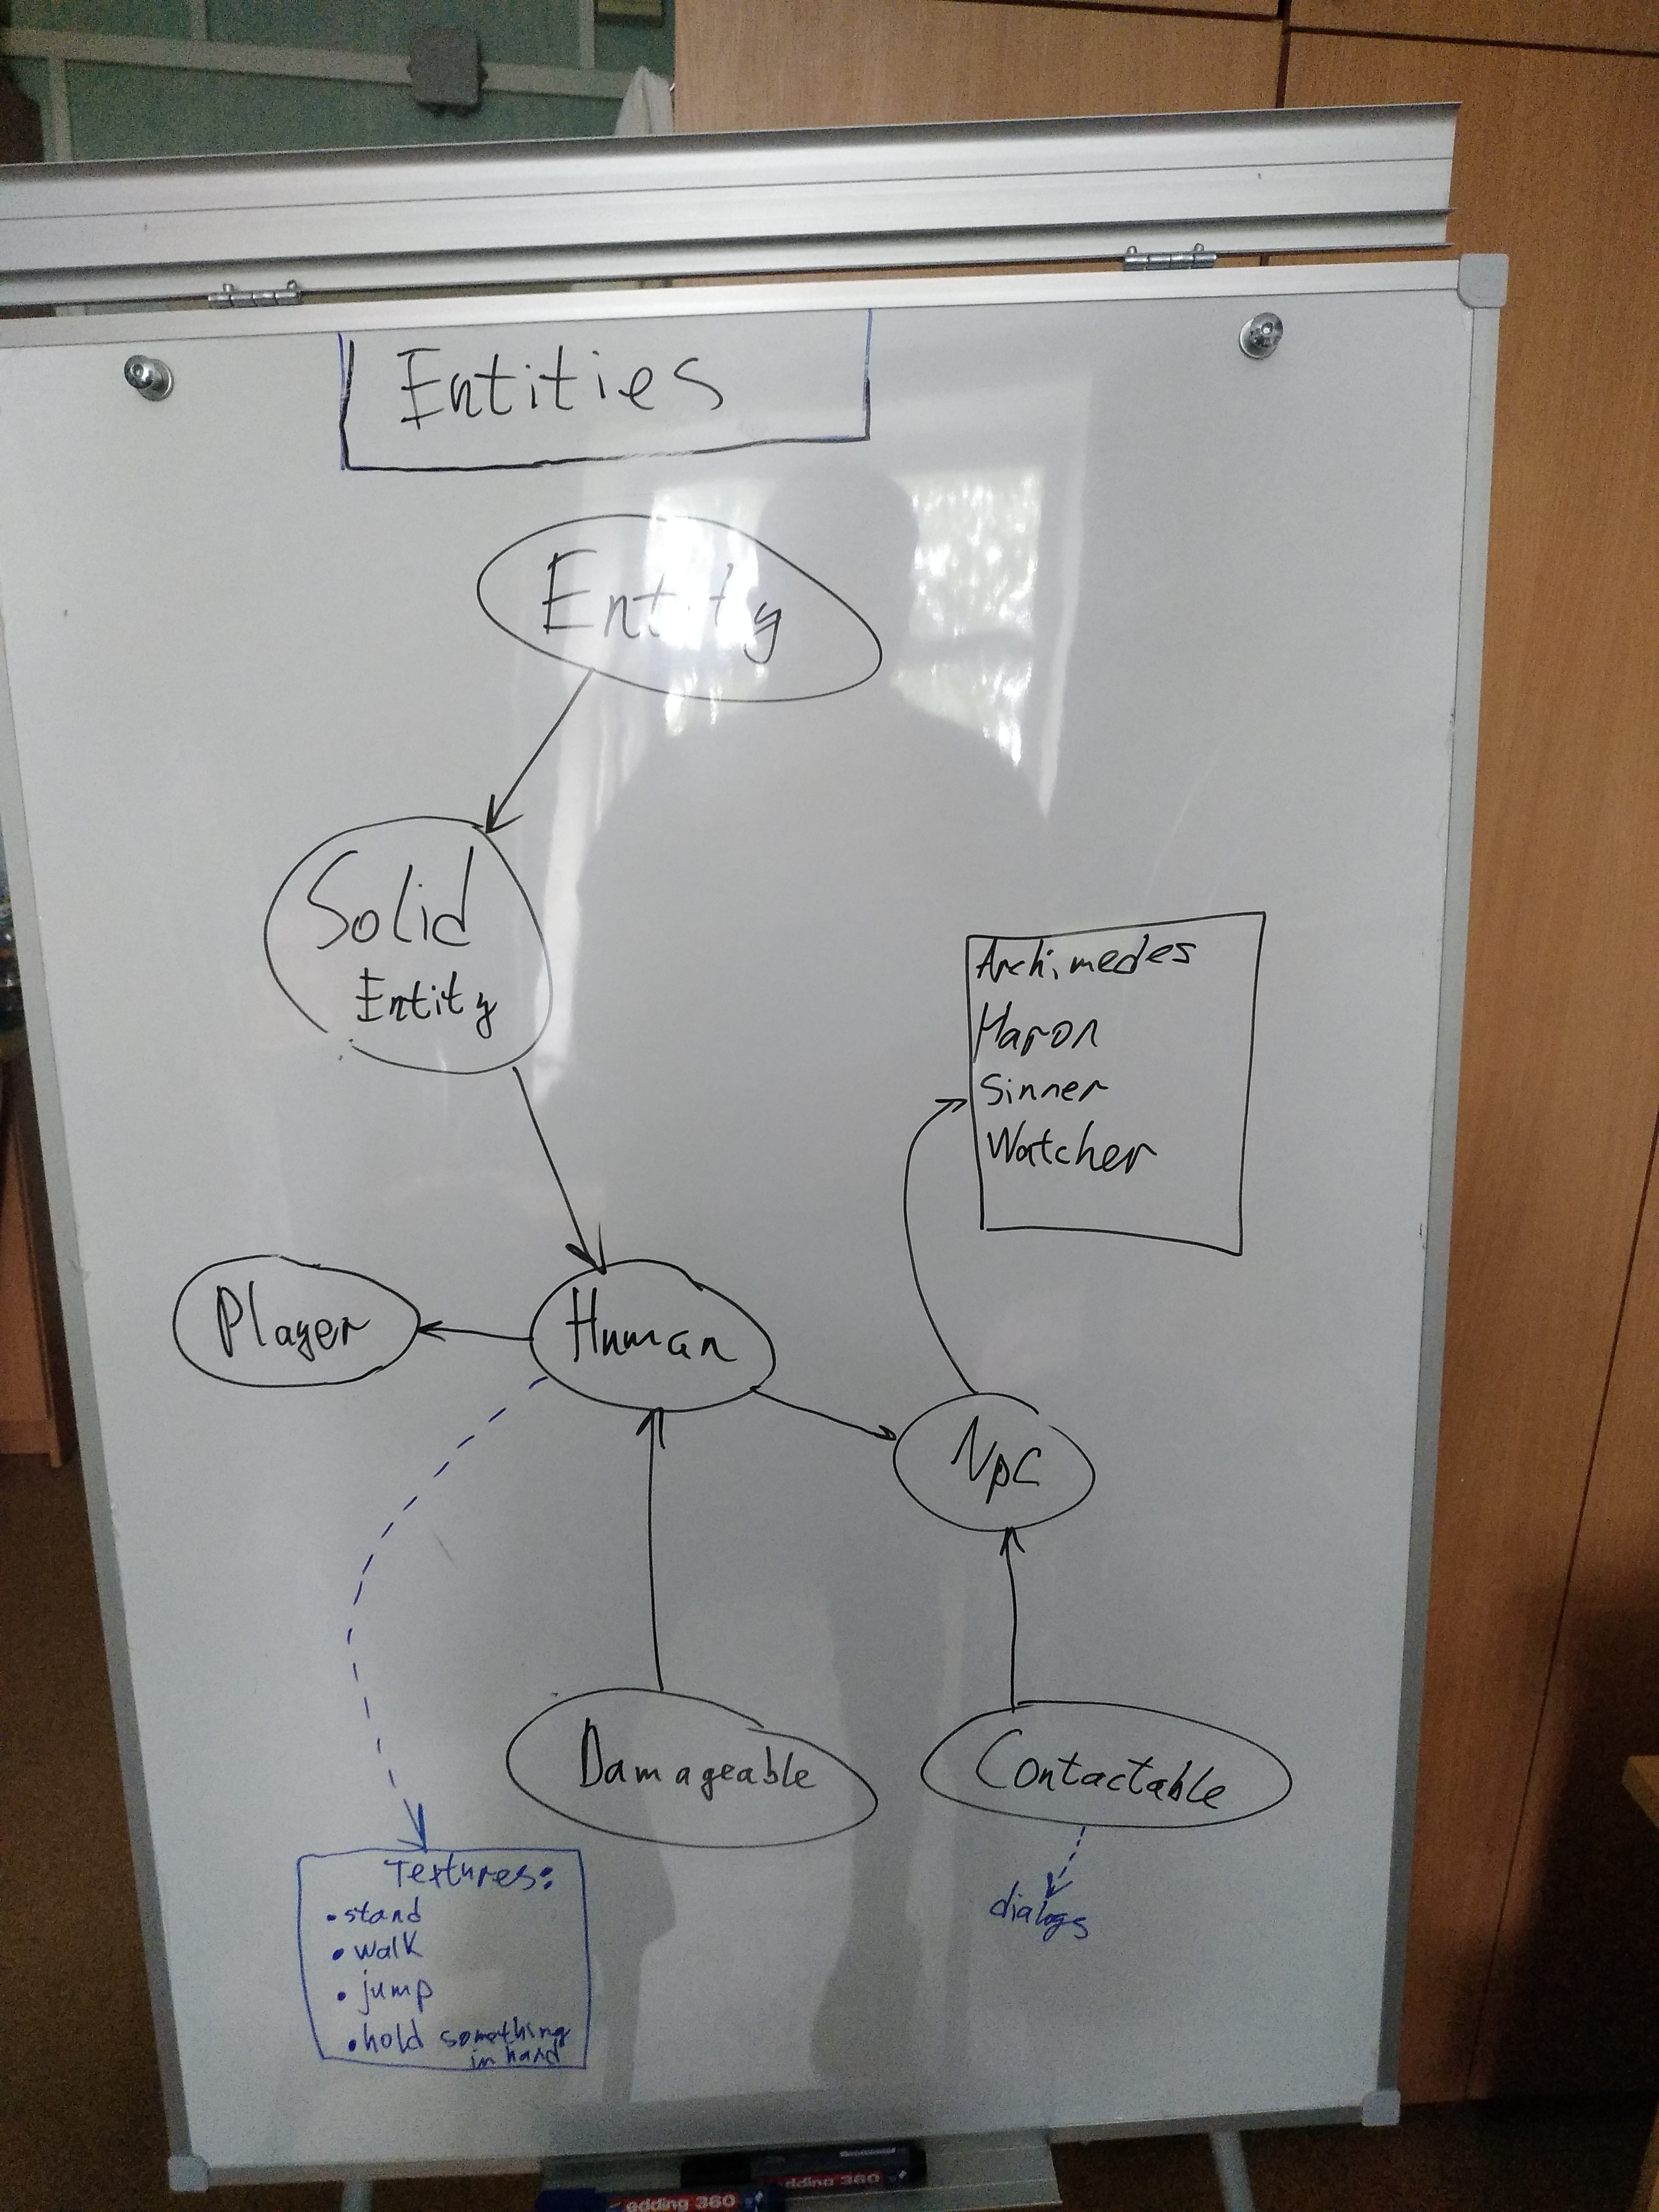 Entities
Entity
Solid
Entity
Archimedes
Haron
Sinner
Watcher
Player
Human
Npc
Damageable
Contactable
Textures:
• stand
• walk
• jump
• hold something
in hand
dialogs
edding 360
edding 360